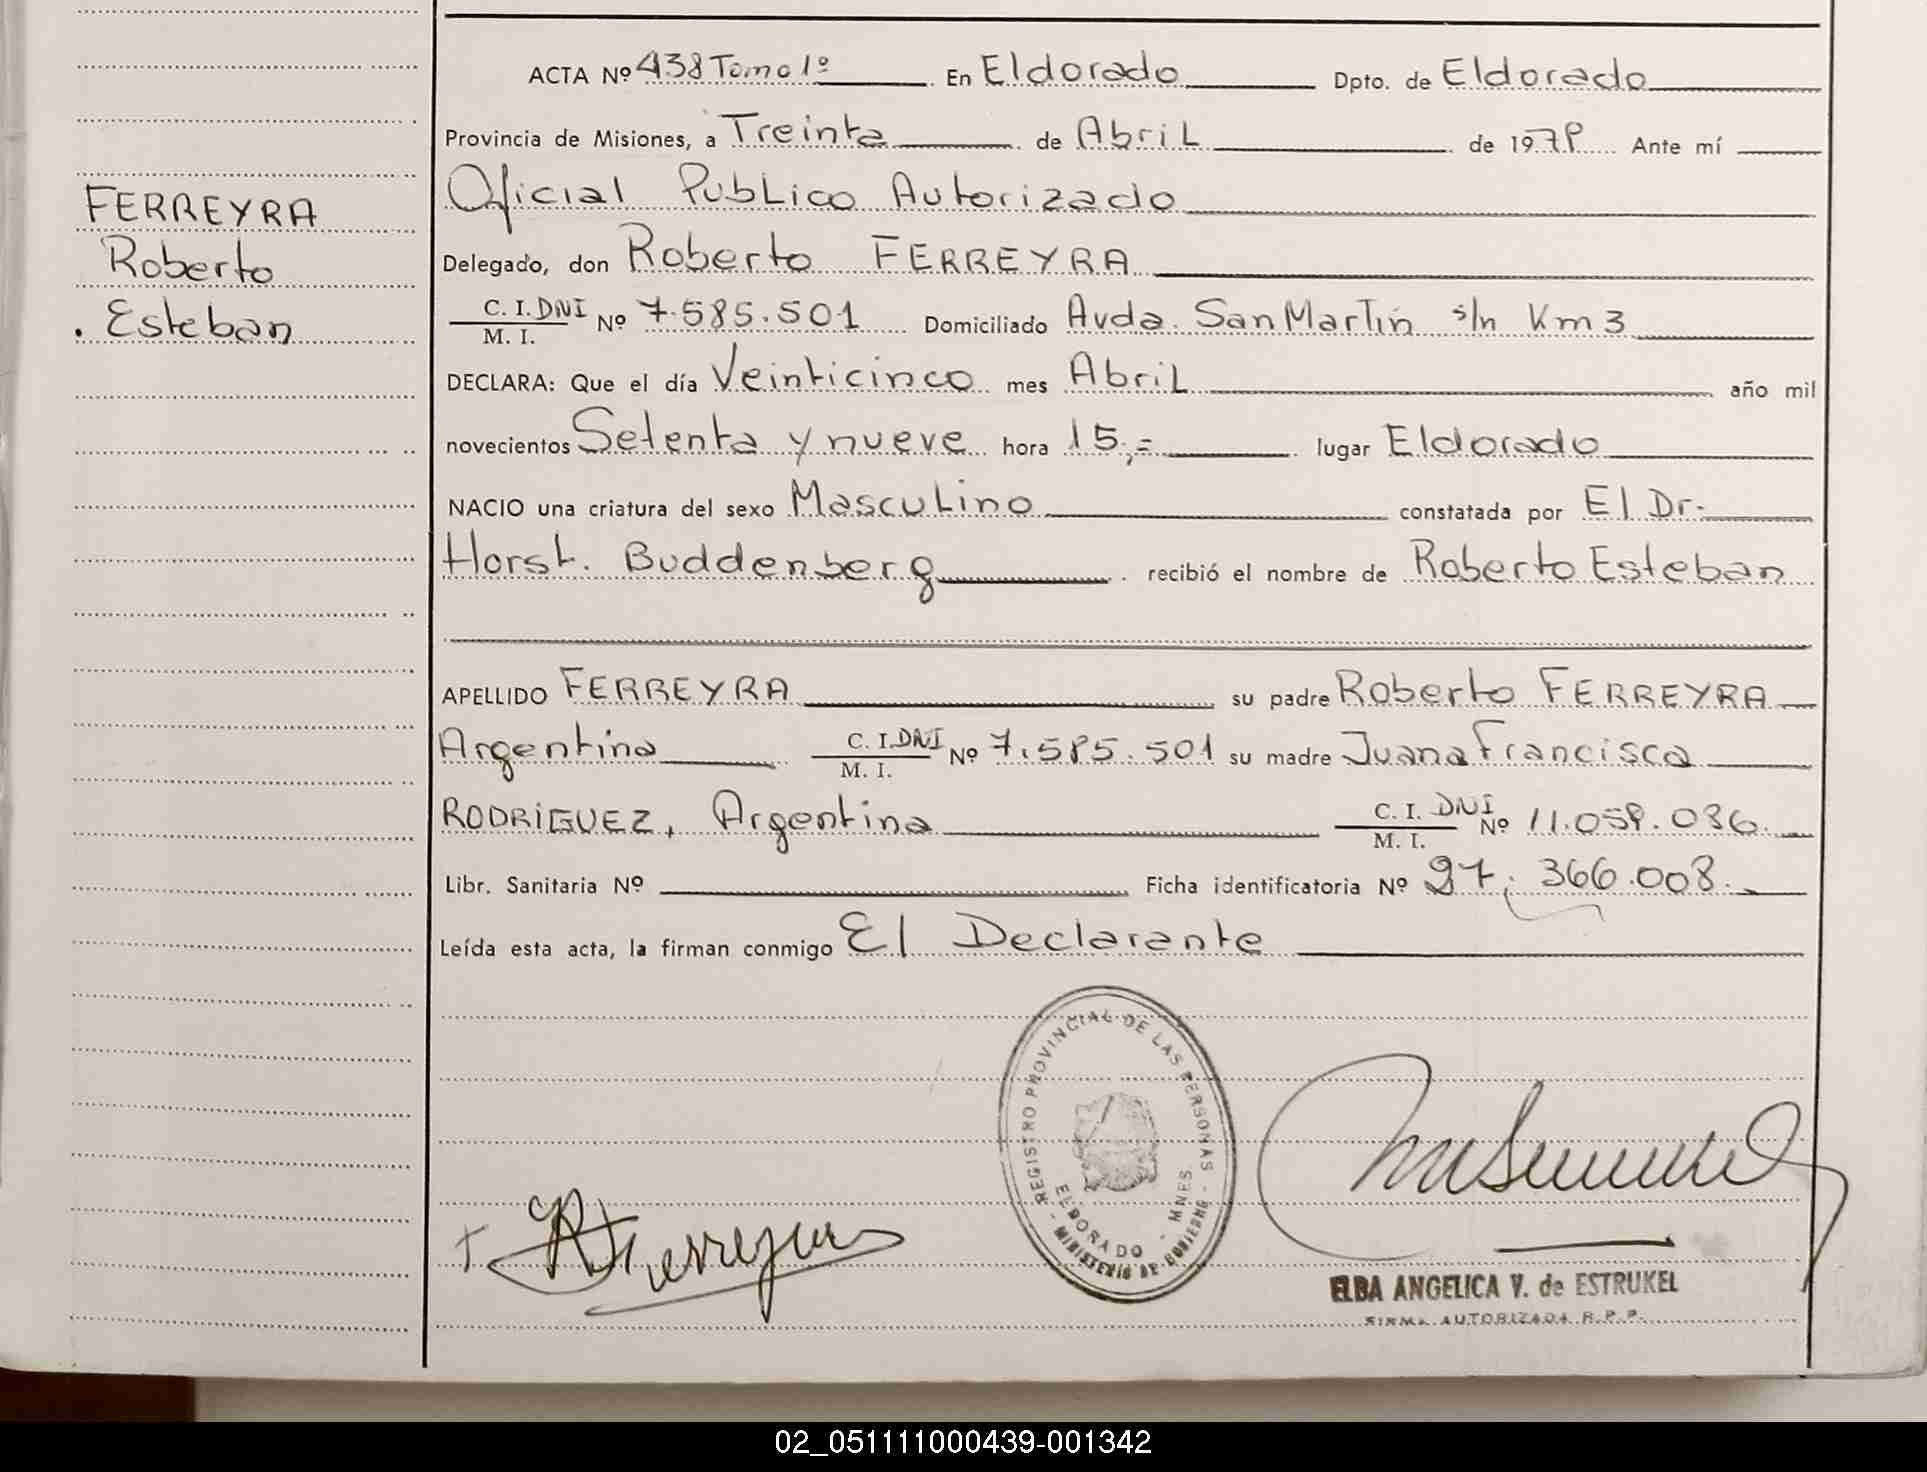 ACTA Nº 438 Tomo 1º. En Eldorado Dpto. de Eldorado
Provincia de Misiones, a Treinta de Abril de 1979 Ante mí
Oficial Publico Autorizado
Delegado, don Roberto FERREYRA
C. I. DNI
M. I. Nº 7.585.501 Domiciliado Avda. San Martin s/n Km 3
DECLARA: Que el día Veinticinco mes Abril año mil
novecientos Setenta y nueve hora 15,= lugar Eldorado
NACIO una criatura del sexo Masculino constatada por El Dr.
Horst. Buddenberg. recibió el nombre de Roberto Esteban
APELLIDO FERREYRA su padre Roberto FERREYRA
Argentino C. I. DNI
M. I. Nº 7.585.501 su madre Juana Francisca
RODRIGUEZ, Argentina C. I. DNI
M. I. Nº 11.059.036.
Libr. Sanitaria Nº Ficha identificatoria Nº 27. 366.008.
Leída esta acta, la firman conmigo El Declarante
FERREYRA
Roberto
Esteban
REGISTRO PROVINCIAL DE LAS PERSONAS
ELDORADO - MNES.
- MINISTERIO DE GOBIERNO -
R Ferreyra
ELBA ANGELICA V. de ESTRUKEL
FIRMA AUTORIZADA R.P.P.
02_051111000439-001342